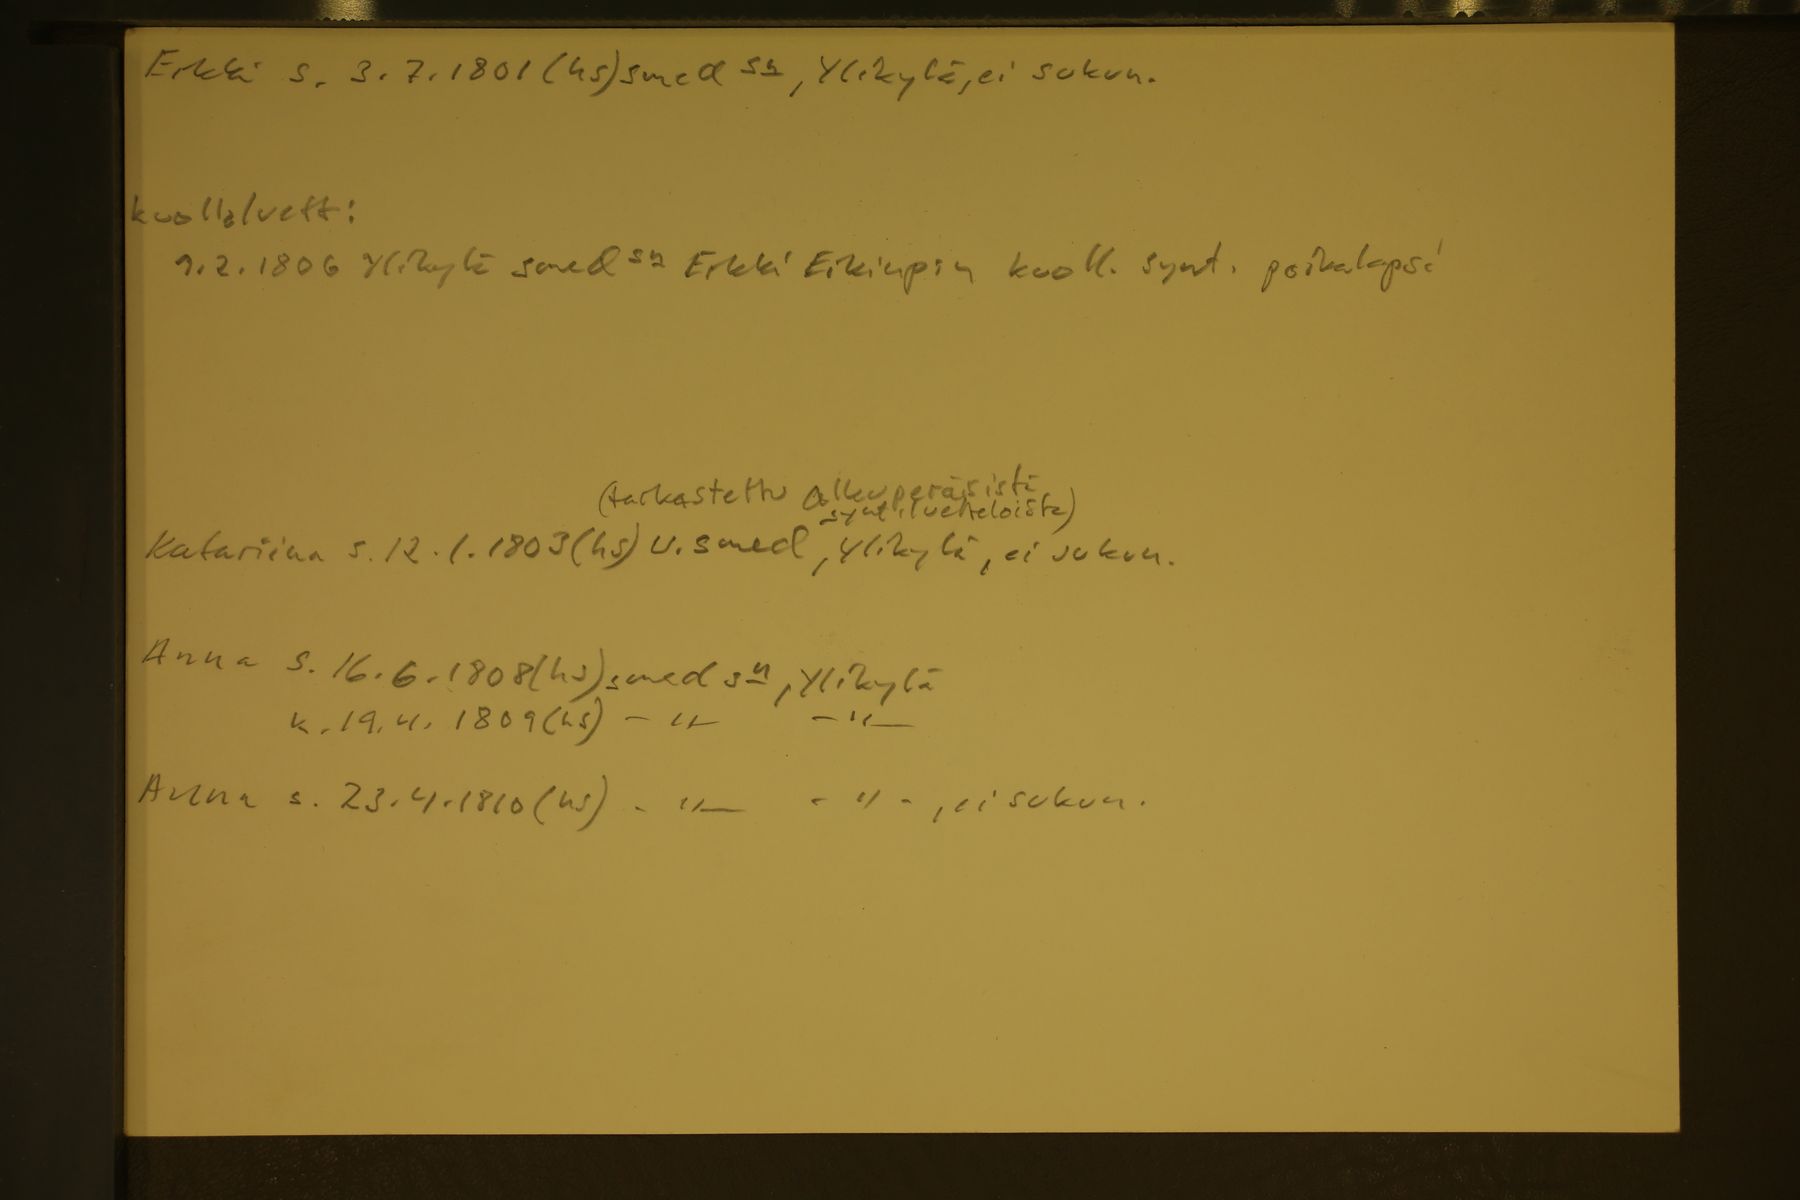 Erkki s. 3.7.1801 (hs) smed sn, Ylikylä, ei sukun.
kuoll.luett:
9.2.1806 Ylikylä smed sn Erkki Erkinp:n kuoll. synt. poikalapsi
(tarkastettu alkuperäisistä
synt.luetteloista)
Katariina s. 12.1.1803 (hs) u. smed, Ylikylä, ei sukun.
Anna s. 16.6.1808 (hs) smed sn, Ylikylä
k. 19.4.1809 (hs) -"- -"-
Anna s. 23.4.1810 (hs) -"- -"-, ei sukun.